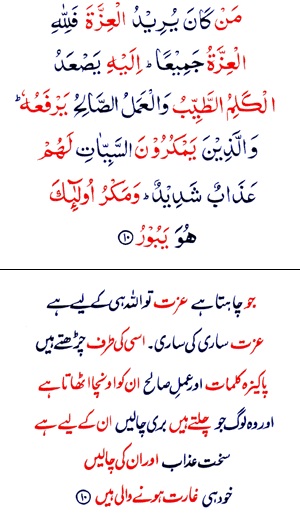 مَنْ كَانَ يُرِيْدُ الْعِزَّةَ فَلِلّٰهِ
الْعِزَّةُ جَمِيْعًا ؕ اِلَيْهِ يَصْعَدُ
الْكَلِمُ الطَّيِّبُ وَالْعَمَلُ الصَّالِحُ يَرْفَعُهٗ ؕ
وَالَّذِيْنَ يَمْكُرُوْنَ السَّيِّاٰتِ لَهُمْ
عَذَابٌ شَدِيْدٌ ؕ وَمَكْرُ اُولٰٓئِكَ
هُوَ يَبُوْرُ ۝۱۰
جو چاہتا ہے عزت تو اللہ ہی کے لیے ہے
عزت ساری کی ساری۔ اسی کی طرف چڑھتے ہیں
پاکیزہ کلمات اور عمل صالح ان کو اونچا اٹھاتا ہے
اور وہ لوگ جو چلتے ہیں بری چالیں ان کے لیے ہے
سخت عذاب اور ان کی چالیں
خود ہی غارت ہونے والی ہیں ۝۱۰